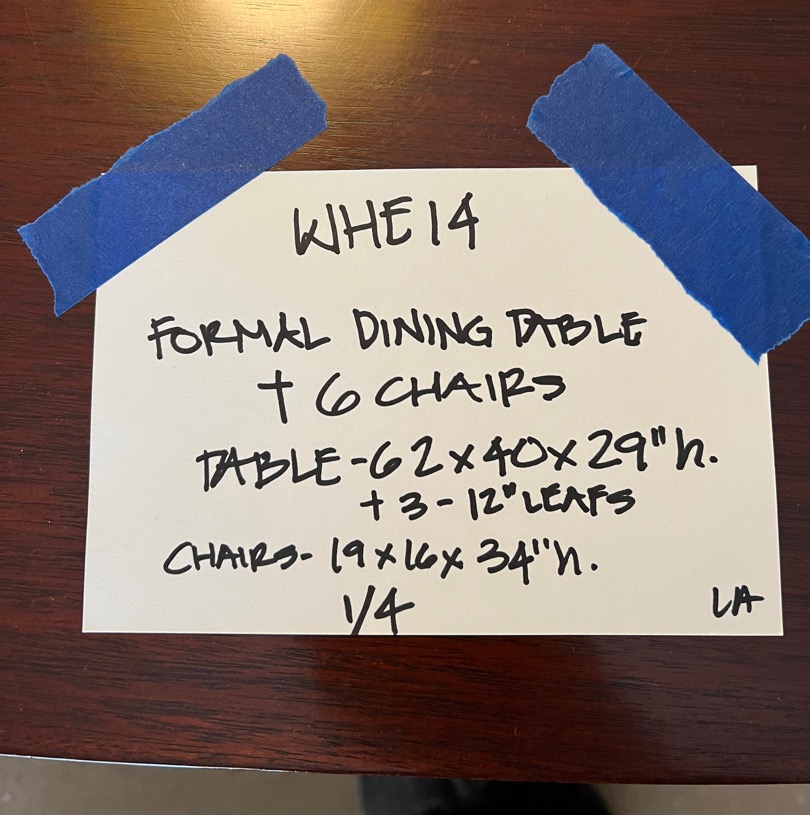 WHE14
FORMAL DINING TABLE
+ 6 CHAIRS
TABLE-62x40x29"h.
+ 3-12" LEAFS
CHAIRS- 19x16x34"h.
1/4
LA